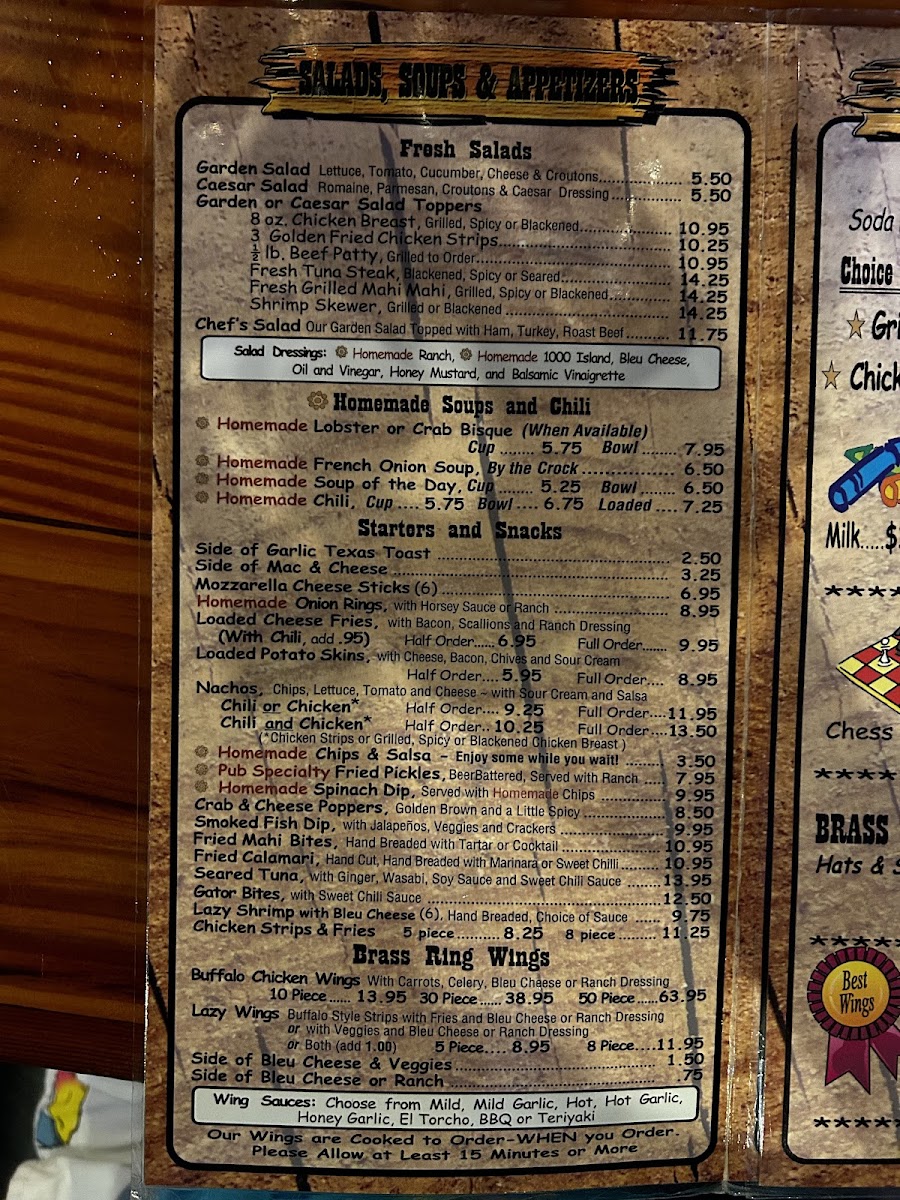 SALADS, SOUPS & APPETIZERS
Fresh Salads
Garden Salad Lettuce, Tomato, Cucumber, Cheese & Croutons................ 5.50
Caesar Salad Romaine, Parmesan, Croutons & Caesar Dressing ............... 5.50
Garden or Caesar Salad Toppers
8 oz. Chicken Breast, Grilled, Spicy or Blackened.................... 10.95
3 Golden Fried Chicken Strips..................................... 10.25
½ lb. Beef Patty, Grilled to Order......................................... 10.95
Fresh Tuna Steak, Blackened, Spicy or Seared....................... 14.25
Fresh Grilled Mahi Mahi, Grilled, Spicy or Blackened............. 14.25
Shrimp Skewer, Grilled or Blackened ................................... 14.25
Chef's Salad Our Garden Salad Topped with Ham, Turkey, Roast Beef.......... 11.75
Salad Dressings: Homemade Ranch, Homemade 1000 Island, Bleu Cheese,
Oil and Vinegar, Honey Mustard, and Balsamic Vinaigrette
Homemade Soups and Chili
Homemade Lobster or Crab Bisque (When Available)
Cup ........ 5.75 Bowl ........ 7.95
Homemade French Onion Soup, By the Crock .................... 6.50
Homemade Soup of the Day, Cup ........ 5.25 Bowl ........ 6.50
Homemade Chili, Cup .... 5.75 Bowl .... 6.75 Loaded .... 7.25
Starters and Snacks
Side of Garlic Texas Toast .................................................. 2.50
Side of Mac & Cheese ........................................................ 3.25
Mozzarella Cheese Sticks (6)................................................ 6.95
Homemade Onion Rings, with Horsey Sauce or Ranch ......................... 8.95
Loaded Cheese Fries, with Bacon, Scallions and Ranch Dressing
(With Chili, add .95) Half Order...... 6.95 Full Order....... 9.95
Loaded Potato Skins, with Cheese, Bacon, Chives and Sour Cream
Half Order.... 5.95 Full Order.... 8.95
Nachos, Chips, Lettuce, Tomato and Cheese ~ with Sour Cream and Salsa
Chili or Chicken* Half Order.... 9.25 Full Order....11.95
Chili and Chicken* Half Order.. 10.25 Full Order....13.50
(*Chicken Strips or Grilled, Spicy or Blackened Chicken Breast )
Homemade Chips & Salsa ~ Enjoy some while you wait! ........ 3.50
Pub Specialty Fried Pickles, BeerBattered, Served with Ranch .... 7.95
Homemade Spinach Dip, Served with Homemade Chips ................. 9.95
Crab & Cheese Poppers, Golden Brown and a Little Spicy .................. 8.50
Smoked Fish Dip, with Jalapeños, Veggies and Crackers ...................... 9.95
Fried Mahi Bites, Hand Breaded with Tartar or Cocktail ...................... 10.95
Fried Calamari, Hand Cut, Hand Breaded with Marinara or Sweet Chilli........ 10.95
Seared Tuna, with Ginger, Wasabi, Soy Sauce and Sweet Chili Sauce .......13.95
Gator Bites, with Sweet Chili Sauce ..................................................12.50
Lazy Shrimp with Bleu Cheese (6), Hand Breaded, Choice of Sauce ...... 9.75
Chicken Strips & Fries 5 piece.......... 8.25 8 piece ......... 11.25
Brass Ring Wings
Buffalo Chicken Wings With Carrots, Celery, Bleu Cheese or Ranch Dressing
10 Piece...... 13.95 30 Piece...... 38.95 50 Piece......63.95
Lazy Wings Buffalo Style Strips with Fries and Bleu Cheese or Ranch Dressing
or with Veggies and Bleu Cheese or Ranch Dressing
or Both (add 1.00) 5 Piece.... 8.95 8 Piece....11.95
Side of Bleu Cheese & Veggies.............................................. 1.50
Side of Bleu Cheese or Ranch ............................................... .75
Wing Sauces: Choose from Mild, Mild Garlic, Hot, Hot Garlic,
Honey Garlic, El Torcho, BBQ or Teriyaki
Our Wings are Cooked to Order-WHEN you Order.
Please Allow at Least 15 Minutes or More
Soda
Choice
Gri
Chick
Milk.....$
******
Chess
******
BRASS
Hats & S
******
Best
Wings
******